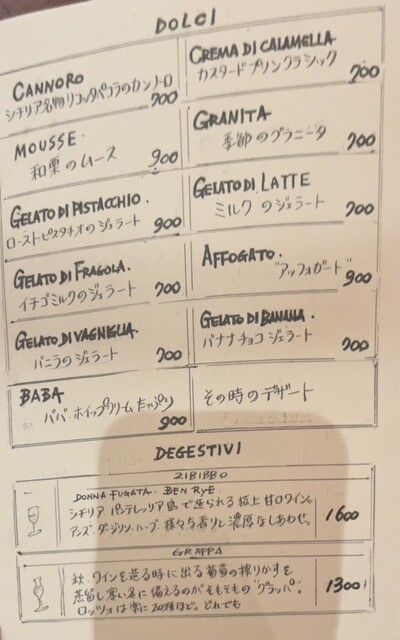 DOLCI
CANNORO
シチリア名物リコッタペコラのカンノーロ
700
CREMA DI CALAMELLA
カスタードプリンクラシック
700
MOUSSE.
和栗のムース
900
GRANITA
季節のグラニータ
700
GELATO DI PISTACCHIO.
ローストピスタチオのジェラート
900
GELATO DI LATTE
ミルクのジェラート
700
GELATO DI FRAGOLA.
イチゴミルクのジェラート
700
AFFOGATO.
"アッフォガード"
900
GELATO DI VAGNIGLIA.
バニラのジェラート
700
GELATO DI BANANA.
バナナチョコジェラート
700
BABA
ババ・ホイップクリームたっぷり
900
その時のデザート
DEGESTIVI
ZIBIBBO
DONNA FUGATA. BEN RYE.
シチリア、パンテレッリア島で造られる極上甘口ワイン。
アンズ、ダージリン、ハーブ 様々な香りと濃厚なしあわせ。
1600
GRAPPA
秋、ワインを造る時に出る葡萄の搾りかすを
蒸留し寒い冬に備えるのがそもそもの"グラッパ"。
ロッツォは常に20種ほど。どれでも
1300